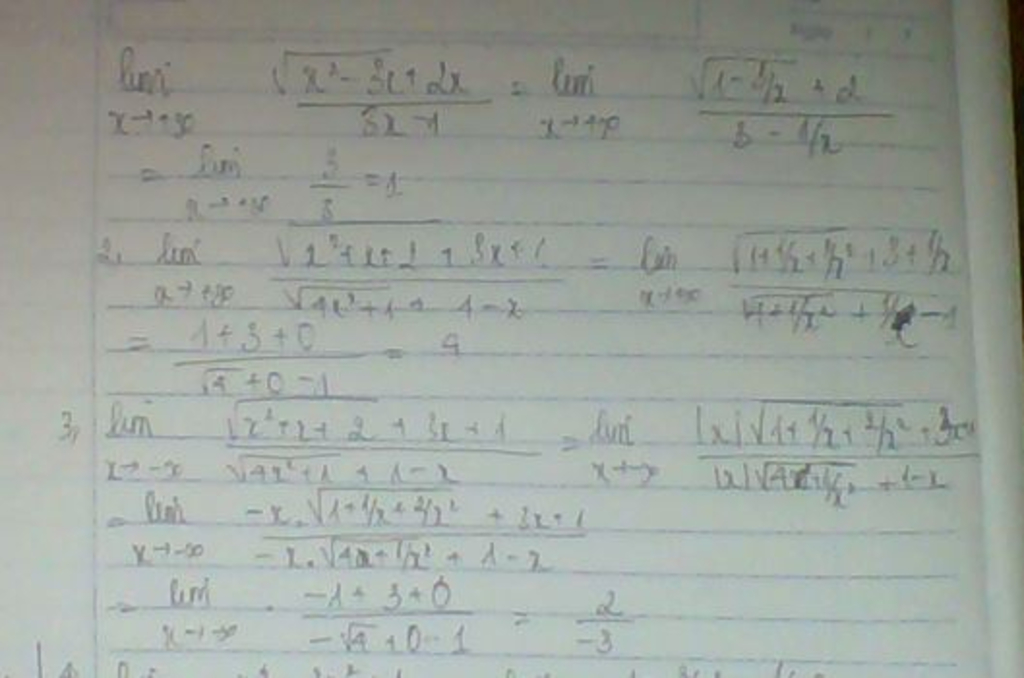 lim x→+∞ (√(x²-3x) + 2x)/(3x-1) = lim x→+∞ (√(1-3/x) + 2)/(3 - 1/x)
= lim x→+∞ 3/3 = 1
2, lim x→+∞ (√(x²+x+2) + 3x+1)/(√(4x²+1) + 1-x) = lim x→+∞ (√(1+1/x+2/x²) + 3 + 1/x)/(√(4+1/x²) + 1/x - 1)
= (1+3+0)/(√4 + 0 - 1) = 4
3, lim x→-∞ (√(x²+x+2) + 3x+1)/(√(4x²+1) + 1-x) = lim x→-∞ (|x|√(1+1/x+2/x²) + 3x+1)/(|x|√(4+1/x²) + 1-x)
= lim x→-∞ (-x.√(1+1/x+2/x²) + 3x+1)/(-x.√(4+1/x²) + 1-x)
= lim x→-∞ (-1+3+0)/(-√4+0-1) = 2/-3